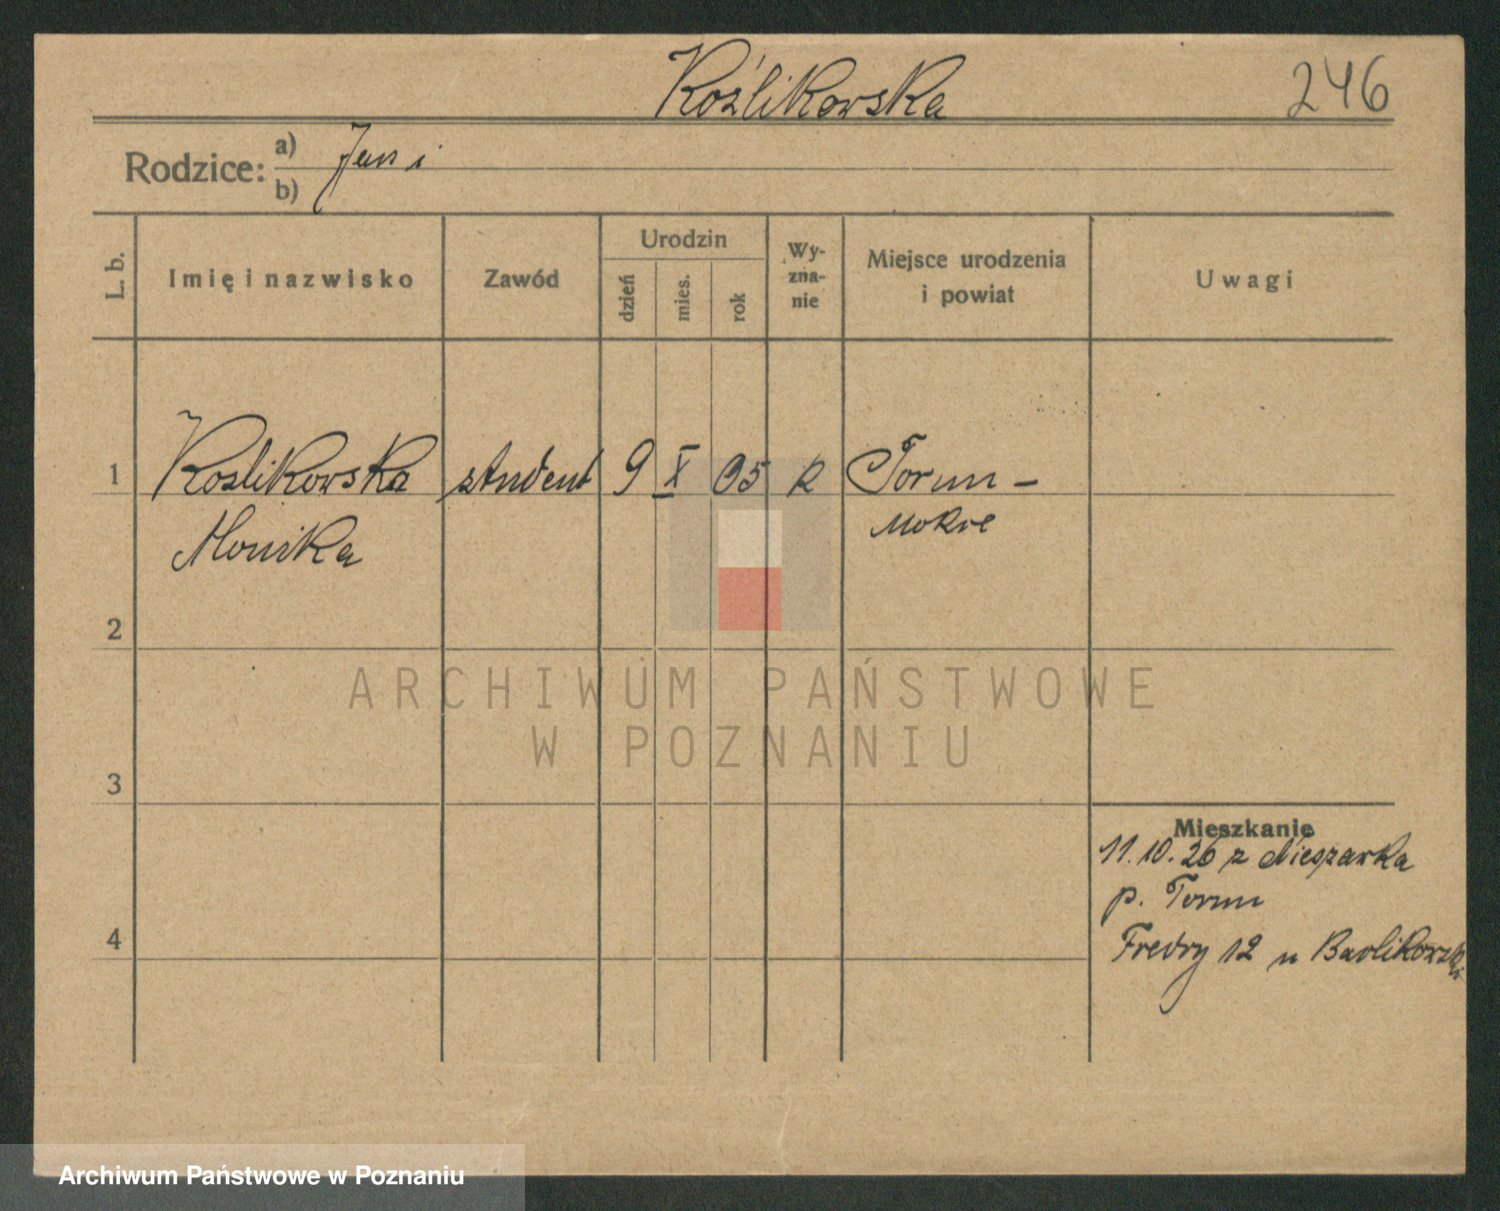 Koźlikowska 246
Rodzice: a) Jan i
b)
L. b. Imię i nazwisko Zawód Urodzin dzień mies. rok Wyznanie Miejsce urodzenia i powiat Uwagi
1 Kozlikowska student 9 X 05 k Torun -
Monika mokre
2
3
Mieszkanie
11.10.26 z Nieszawka
p. Torun
4 Fredry 12 u
ARCHIWUM PAŃSTWOWE
W POZNANIU
Archiwum Państwowe w Poznaniu